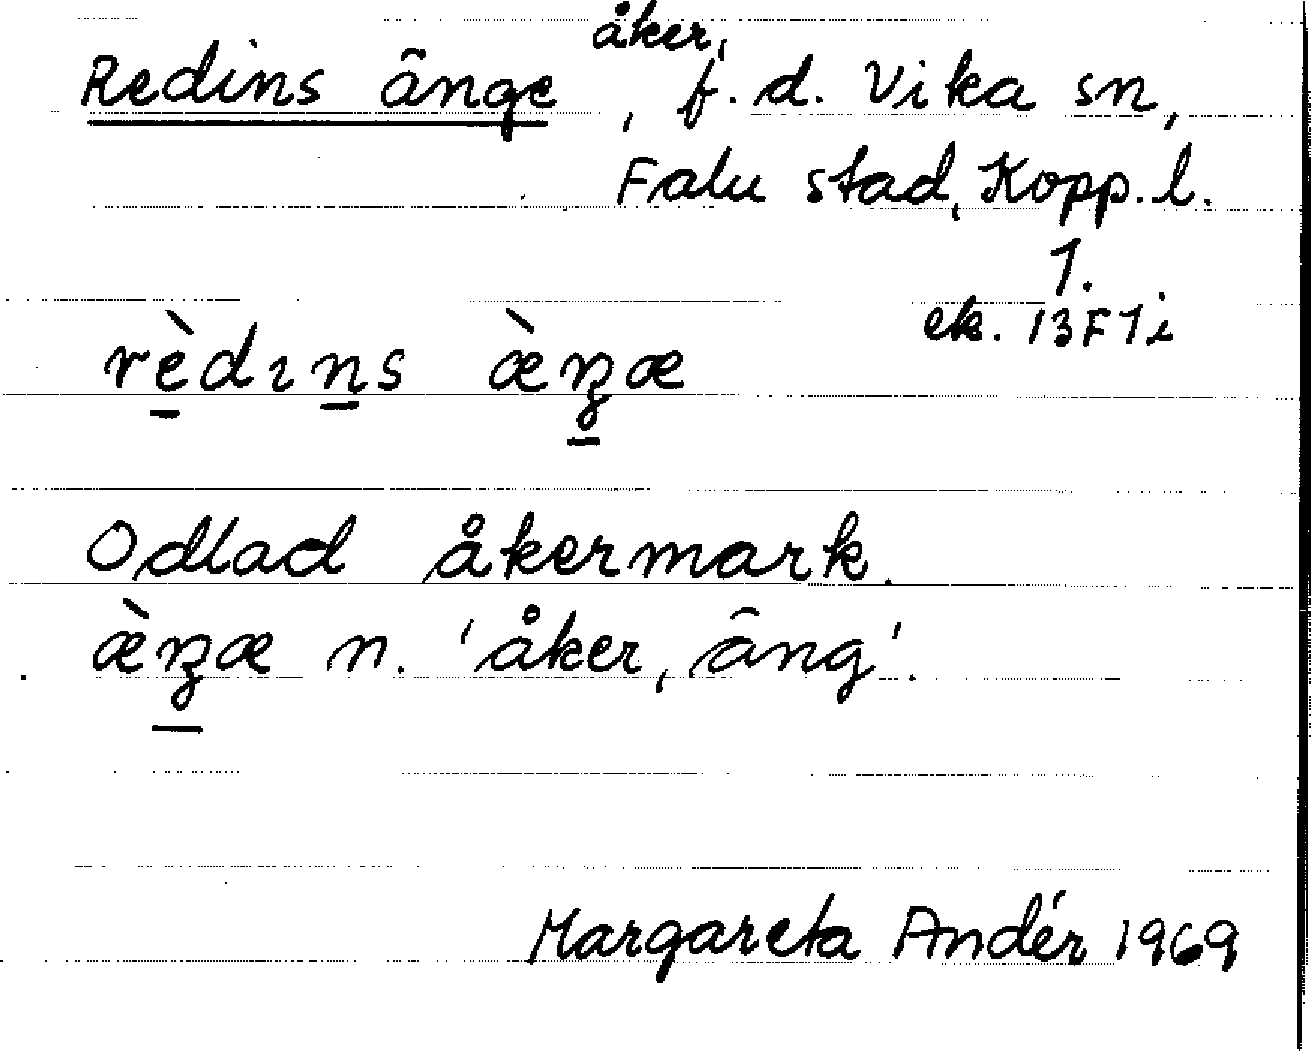 Redins änge åker, , f. d. Vika sn,
Falu stad, Kopp. l.
1.
ek. 13F1i
rèdıns æ̀ȵæ
Odlad åkermark.
n. 'åker, äng'.
Margareta Andér 1969